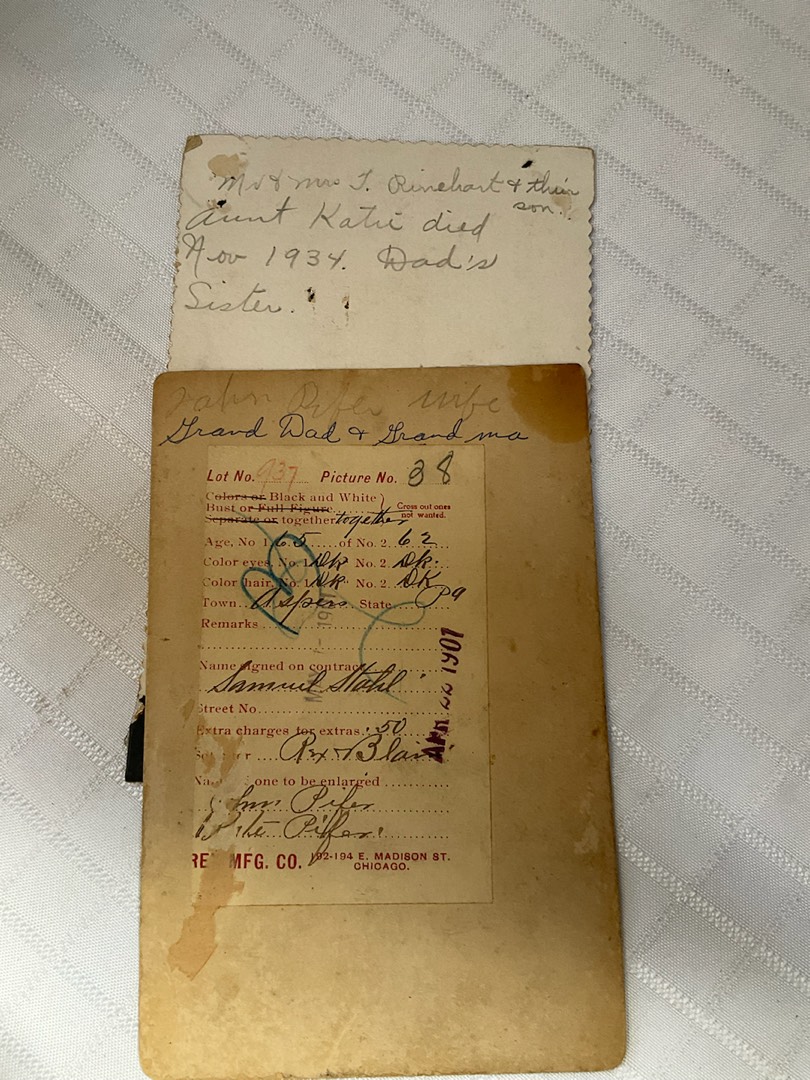 Mr & Mrs T. Rinehart & their
son.
Aunt Katie died
Nov 1934. Dad's
Sister.
John Pifer wife
Grand Dad & Grand ma
Lot No. 937 Picture No. 38
Colors or Black and White)
Bust or Full Figure
Cross out ones
not wanted.
Separate or together together
Age, No 1. 65 of No. 2. 62
Color eyes, No. 1 Dk No. 2. Dk.
Color hair, No. 1 Dk No. 2. DK
Town Aspers State Pa
Remarks
Name signed on contract
Samuel Stahl
Street No
APR 22 1901
Extra charges for extras .50
Rex Blair
one to be enlarged
John Pifer
Pifer
MFG. CO. 192-194 E. MADISON ST.
CHICAGO.